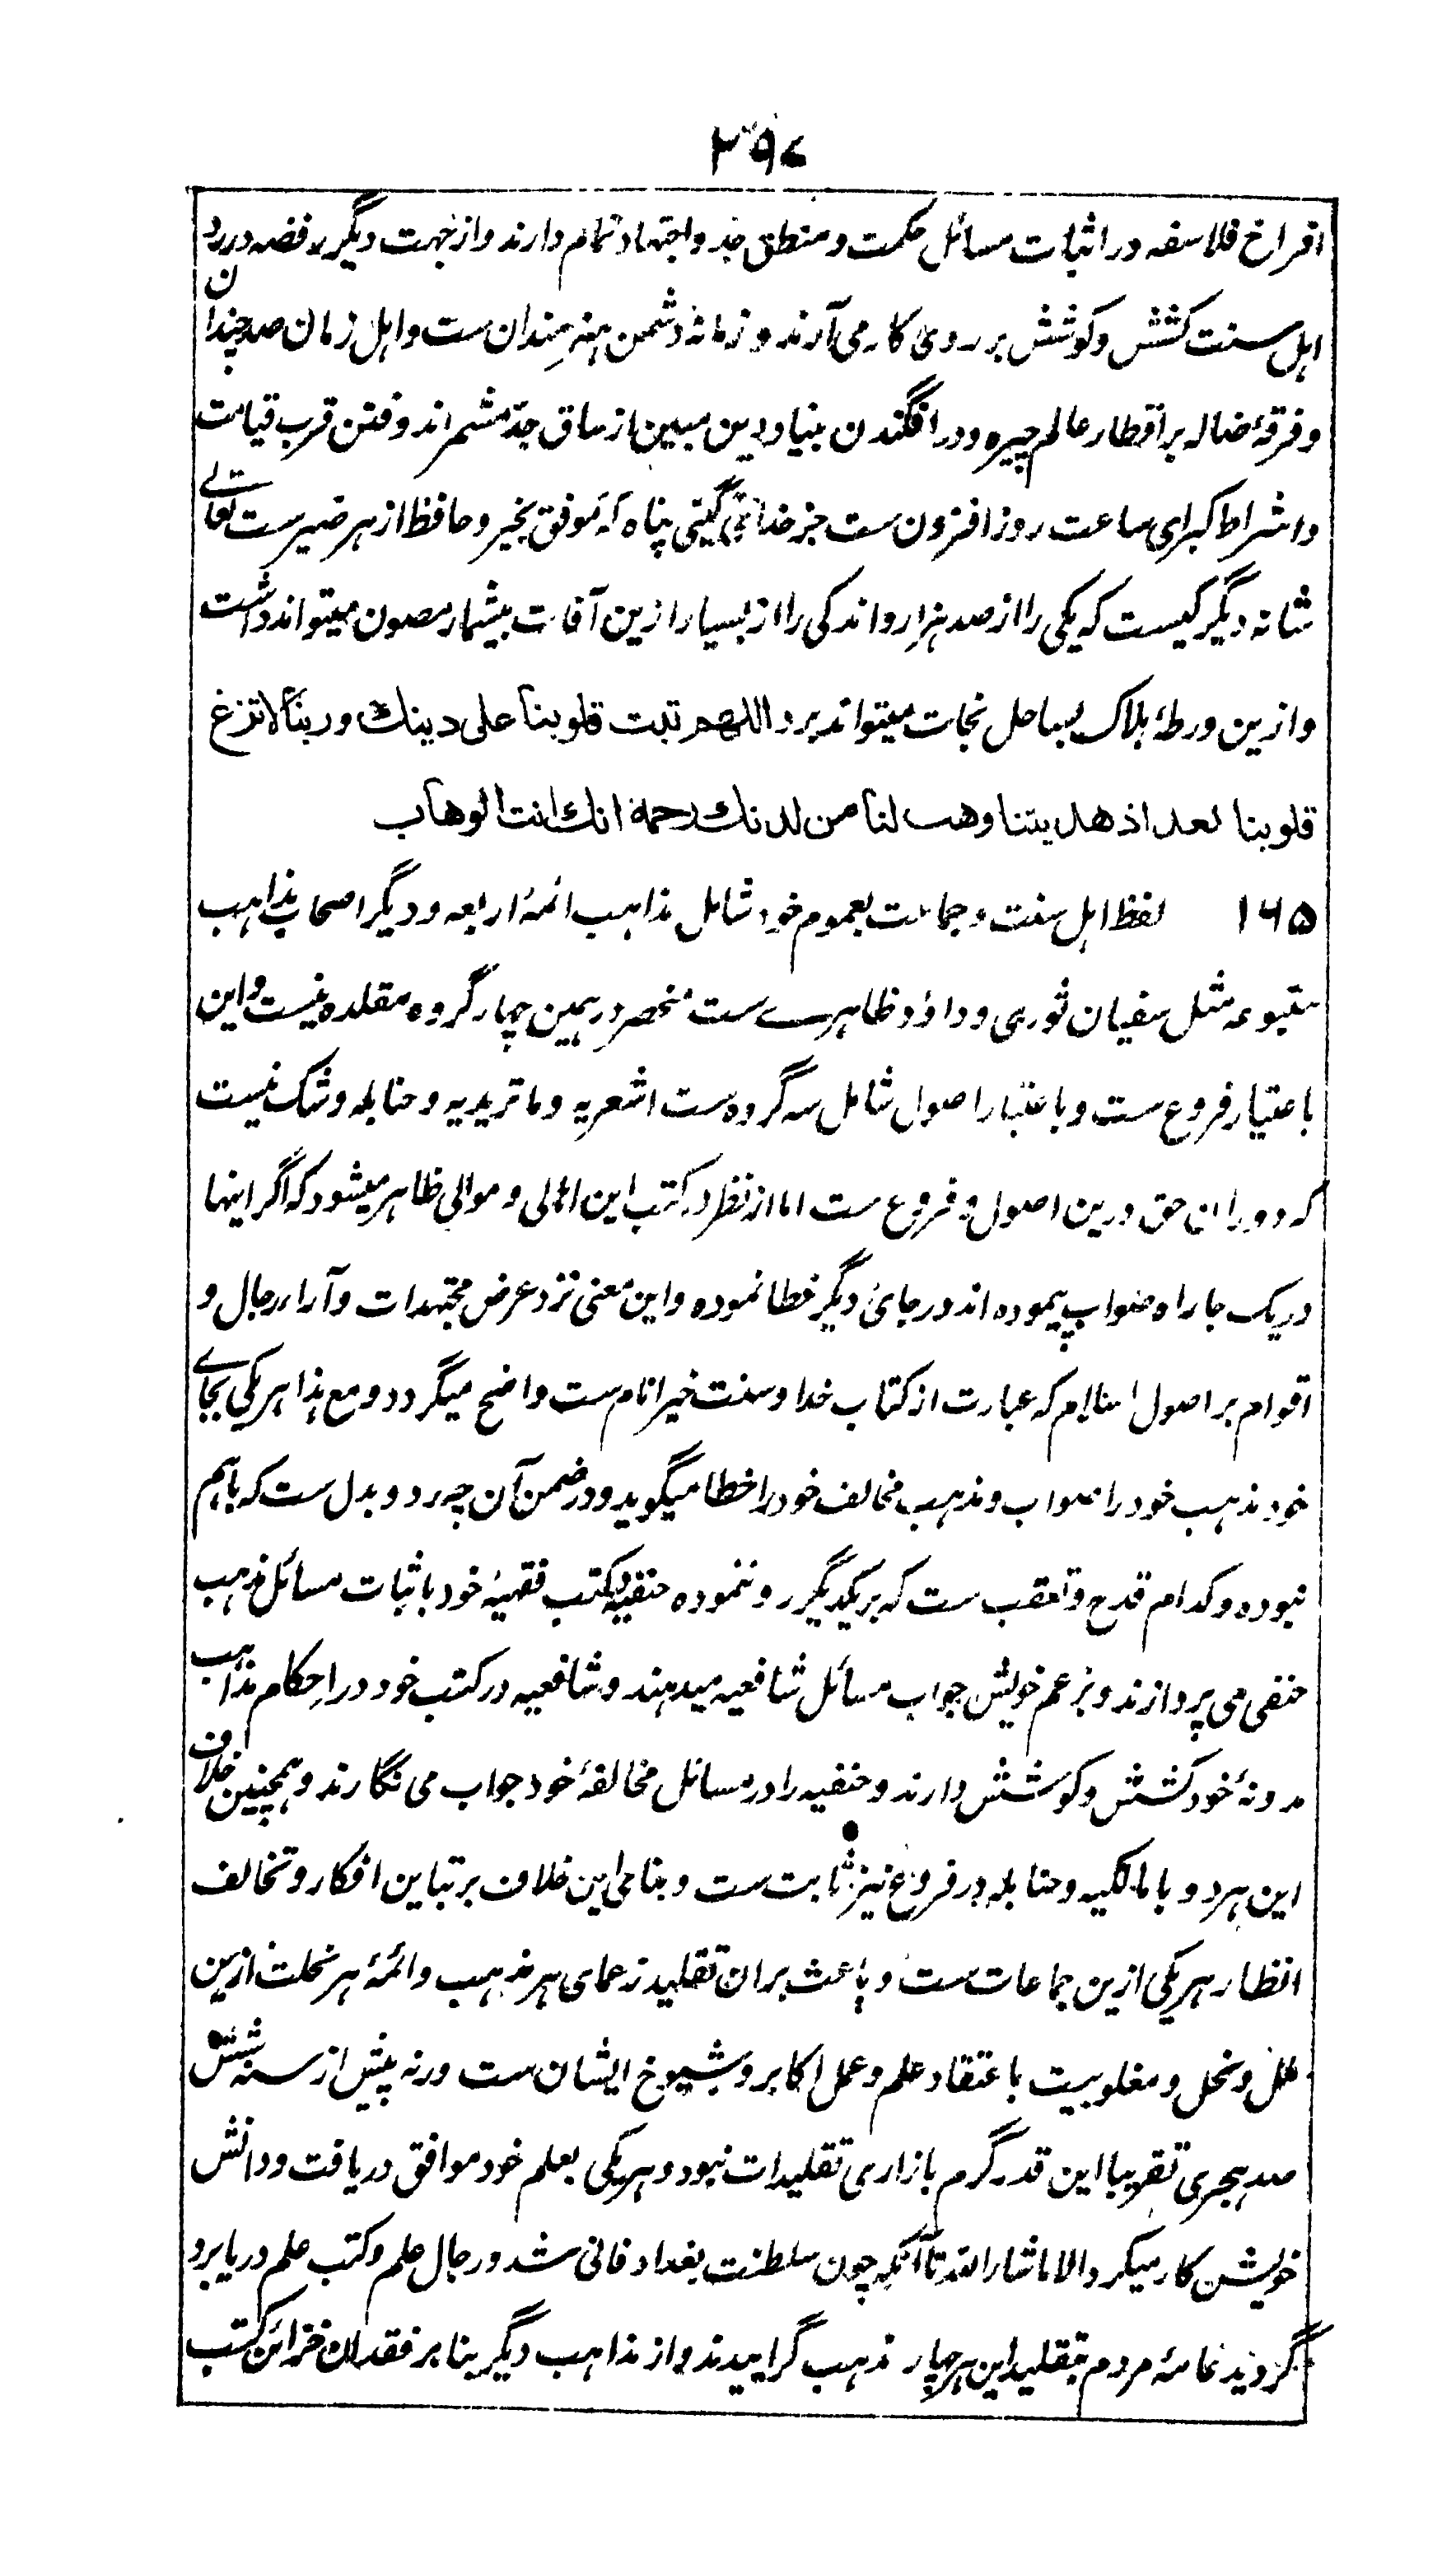 ۳۹۷
افراخ فلاسفه در اثبات مسائل حکمت و منطق جد و اجتهاد تمام دارند و از جهت دیگر رفضه در رد
اهل سنت کشش و کوشش بر روی کار می آرند و زمانه دشمن هنرمندان ست و اهل زمان صد چندان
و فرقۂ ضاله بر اقطار عالم چیره و در افگندن بنیاد دین مبین از ساق جد مشمر اند و فتن قرب قیامت
و اشراط کبرای ساعت روز افزون ست جز خدائی گیتی پناه که موفق بخیر و حافظ از هر ضیر ست تعالے
شانه دیگر کیست که یکی را از صد هزار و اندکی را از بسیار ازین آفات بیشمار مصون میتواند داشت
و ازین ورطۂ هلاک بساحل نجات میتواند برد اللهم ثبت قلوبنا علی دینك و ربنا لا تزغ
قلوبنا بعد اذ هدیتنا وهب لنا من لدنك رحمة انك انت الوهاب
۱۶۵ لفظ اهل سنت و جماعت بعموم خود شامل مذاهب ائمۂ اربعه و دیگر اصحاب مذاهب
متبوعه مثل سفیان ثوری و داؤد ظاهرے ست منحصر در همین چهار گروه مقلده نیست و این
باعتبار فروع ست و باعتبار اصول شامل سه گروه ست اشعریه و ماتریدیه و حنابله و شک نیست
که دوران حق درین اصول و فروع ست اما از نظر در کتب این اهالی و موالی ظاهر میشود که اگر اینها
در یک جا راه صواب پیموده اند در جائ دیگر خطا نموده و این معنی نزد عرض مجتهدات و آراء رجال و
اقوام بر اصول اسلام که عبارت از کتاب خدا و سنت خیر انام ست واضح میگردد و مع هذا هر یکی بجاے
خود مذهب خود را صواب و مذهب مخالف خود را خطا میگوید و در ضمن آن چه رد و بدل ست که باهم
نبوده و کدام قدح و تعقب ست که بر یکدیگر رو ننموده حنفیه در کتب فقهیۂ خود باثبات مسائل مذهب
حنفی می پردازند و بزعم خویش جواب مسائل شافعیه میدهند و شافعیه در کتب خود در احکام مذاهب
مدونۂ خود کشش و کوشش دارند و حنفیه را در مسائل مخالفۂ خود جواب می نگارند و همچنین خلاف
این هر دو با مالکیه و حنابله در فروع نیز ثابت ست و بنای این خلاف بر تباین افکار و تخالف
انظار هر یکی ازین جماعات ست و باعث بران تقلید زعمای هر مذهب و ائمۂ هر نحلت ازین
ملل و نحل و مغلوبیت باعتقاد علم و عمل اکابر و شیوخ ایشان ست ورنه پیش از سنه شش
صد هجری تقریبا این قدر گرم بازاری تقلیدات نبود و هر یکی بعلم خود موافق دریافت و دانش
خویش کار میکرد الا ماشاء الله تا آنکه چون سلطنت بغداد فانی شد و رجال علم و کتب علم دریا برد
گردید عامۂ مردم بتقلید این هر چهار مذهب گراییدند و از مذاهب دیگر بنا بر فقدان خزائن کتب